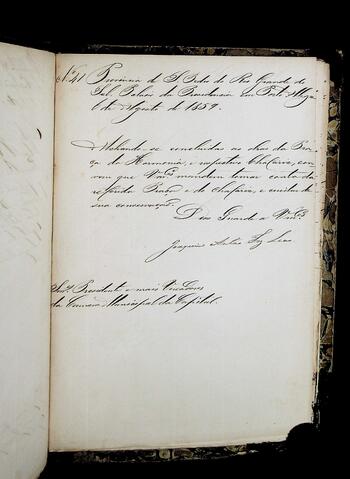 Nº 41 Provincia de S. Pedro do Rio Grande do
Sul, Palacio da Presidencia em Porto Alegre
6 de Agosto de 1859.
Achando-se concluidas as obras da Pra-
ça da Harmonia, e respectivo Chafariz, con-
vem que Vmces mandem tomar conta da
referida Praça e do chafariz, e cuidar de
sua conservação.
Deos Guarde a Vmces
Joaquim Antão Fez Leão
Snrs Presidente e mais Vereadores
da Camara Municipal da Capital.